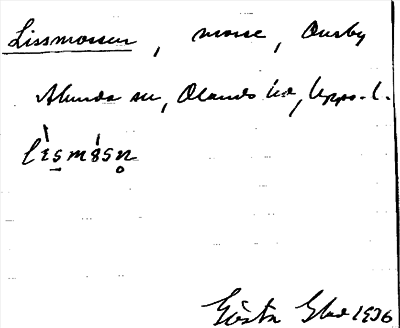 Lissmossen, mosse, Ounsby
Alunda sn, Olands hd, Upps. l.
lɪsmɔsn̥
Gösta Glad 1936